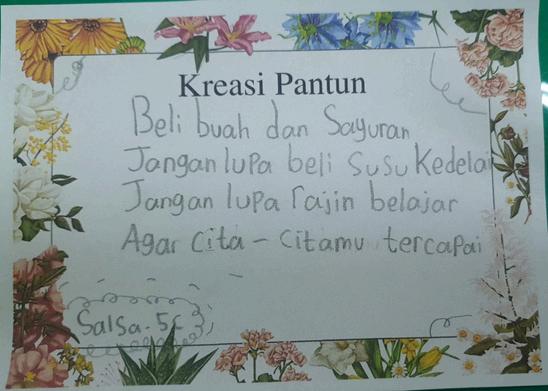 Kreasi Pantun
Beli buah dan Sayuran
Jangan lupa beli susu Kedelai
Jangan lupa rajin belajar
Agar Cita - Citamu tercapai
Salsa. 5c